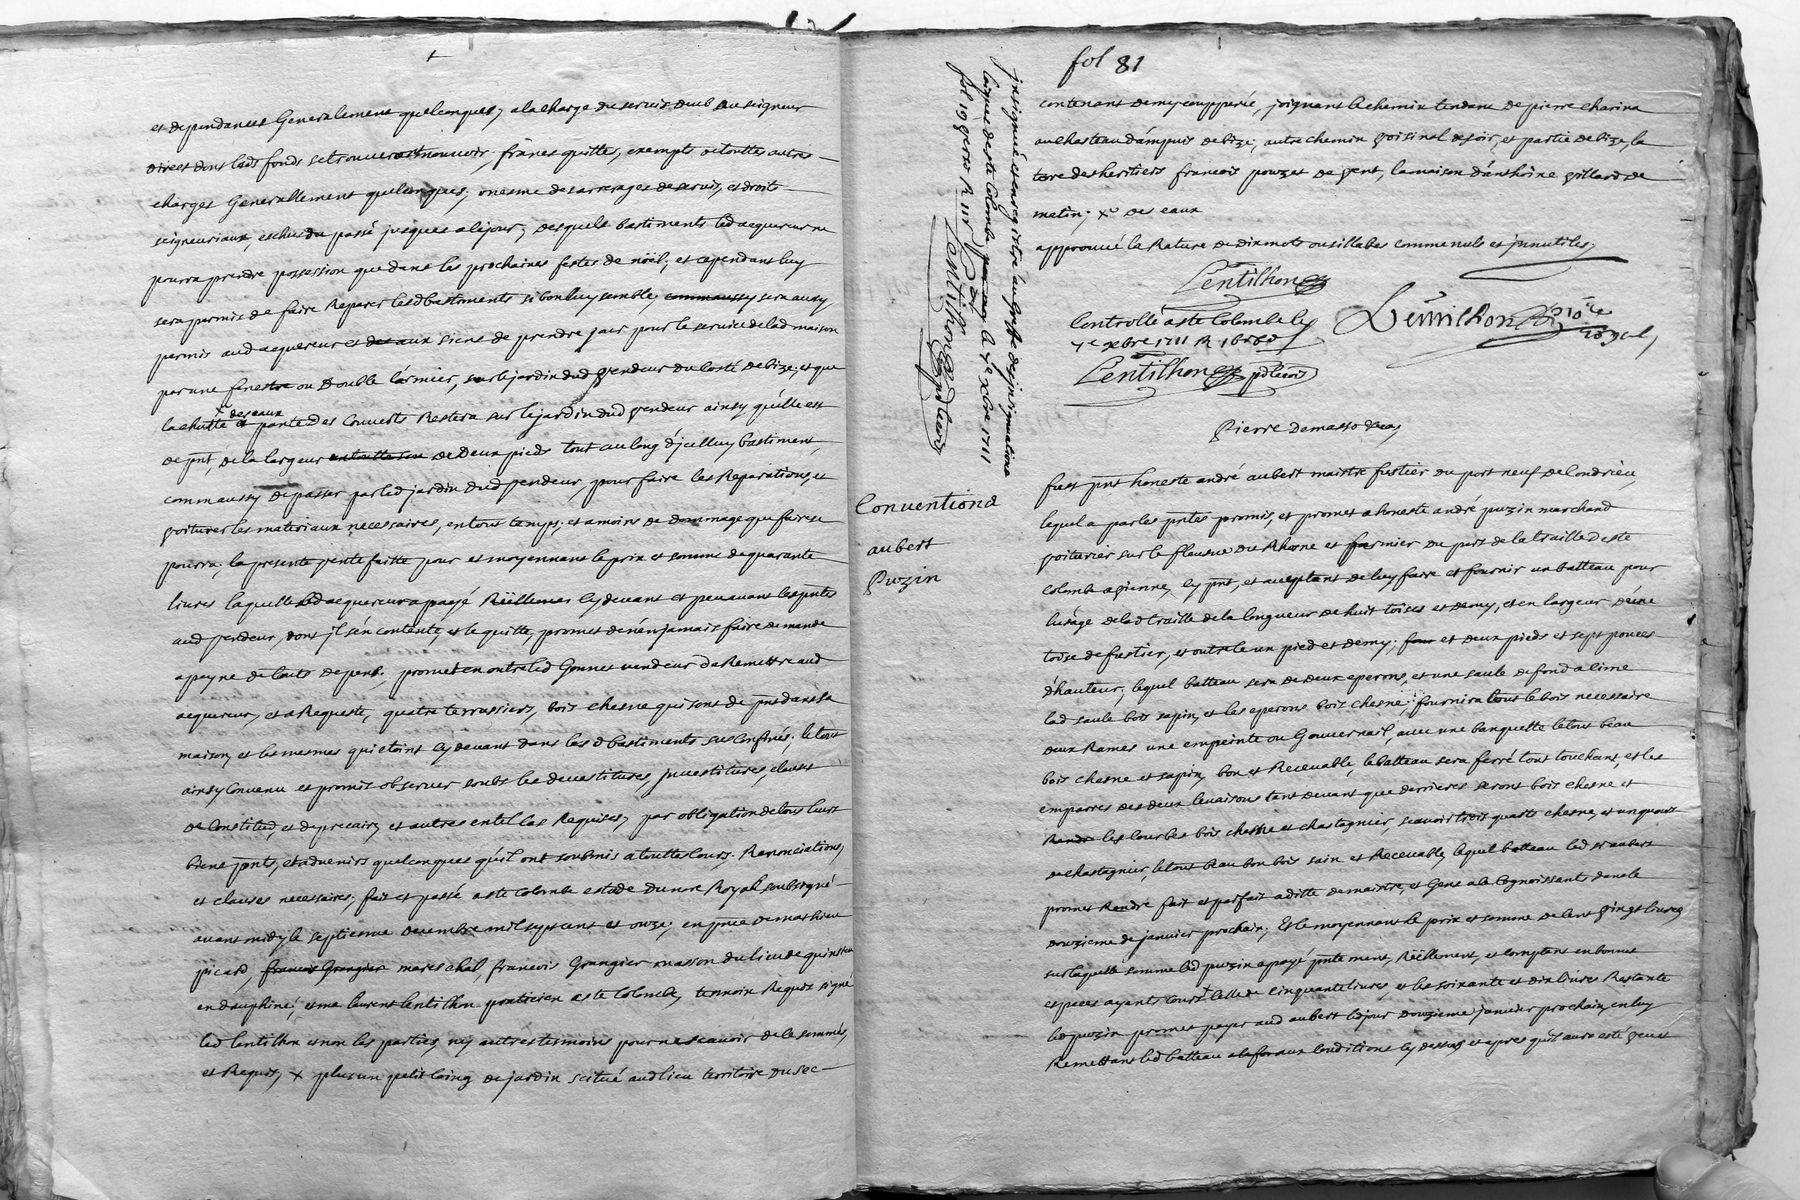 et dependances Generalement quelconques, a la charge du servis deub au seigneur
direct dont lesd fonds se trouveront mouvoir, francs quittes, exempts de touttes autres
charges Generallement quelconques, mesme des arrerages de servis, et droit
seigneuriaux, eschus du passé jusques a ce jour, desquels bastiments led acquereur ne
pourra prendre possession que dans les prochaines festes de nöel, et cependant luy
sera permis de faire Reparer lesd bastiments si bon luy semble, commaussy sera aussy
permis aud acquereur et des aux siens de prendre jour pour le service de lad maison
par une fenestre ou double larmier, sur le jardin dud vendeur du costé de bize, et que
la chutte et pante des couverts Restera sur le jardin dud vendeur ainsy qu'elle est
x des eaux
de pnt, de la largeur de deux pieds tout au long d'jcelluy bastiment,
commaussy de passer par led jardin dud vendeur, pour faire les Reparations, et
voiturer les materiaux necessaires, en tout temps, et a moins de dommage que faire se
pourra, la presente vente faitte pour et moyennant le prix et somme de quarante
livres laquelle led acquereur a payé Réellement cy devant et peu avant les pntes
aud vendeur, dont jl s'en contente, et le quitte, promet de n'en jamais faire demande
a peyne de touts depens, promet en outre led Gonnet vendeur de Remettre aud
acquereur, et a Requeste, quatre terrassiers, bois chesne qui sont de pnt dans sa
maison, et les mesmes qui etoint cy devant dans les d bastiments sus confinés, le tout
ainsy convenu et promis observer soubs les devestitures, jnvestitures, clauses
de constitud, et de precaire, et autres en tel cas Requises, par obligation de tous leurs
biens pnts, et advenirs quelconques qu'il ont soubmis a toutte cours, Renonciations,
et clauses necessaires, fait et passé a ste colombe estude du nore Royal soubsigné
avant midy le septieme decembre mil sept cent et onze, en pnce de mathieu
picard, francois Grangier mareschal, francois Grangier masson du lieu de quinsieu
en dauphiné, et me laurent lentilhon praticien a ste colombe, temoins Requis signé
led lentilhon et non les parties, ny autres tesmoins pour ne scavoir de ce sommés,
et Requis, x plus un petit coing de jardin scitué aud lieu territoire susec
fol 81
contenant demy coupperée, joignant le chemin tendant de pierre charina
au chasteau d'ampuis de bize, autre chemin voisinal de soir, et partie de bize, la
terre des heritiers francois pouzet de vent, la maison d'anthoine villard de
matin, x des eaux
approuvé la Rature de dix mots ou sillabes comme nuls et jnnutiles,
Lentilhon
Controllé a ste Colombe le
7e xbre 1711 R
Lentilhon
Lentilhon
Royal
jnsigné et enregistré au Greffe des jnsinuations
laiques de ste Colombe le 7e xbre 1711
fol 19
Lentilhon
Pierre Demasso
Conventions
aubert
Puzin
fust pnt honeste andré aubert maistre fustier du port neuf de Condrieu,
lequel a par les pntes promis, et promet a honeste andré puzin marchand
voiturier sur le fleusve du Rhosne et fermier du port de la traille de ste
colombe a vienne, cy pnt, et acceptant de luy faire et fournir un batteau pour
l'usage de lad traille de la longueur de huit toises et demy, et en largeur d'une
toise de fustier, et outre le un pied et demy, et deux pieds et sept pouces
d'hauteur, lequel batteau sera de deux eperons, et une saule de fond a lime
lad saule bois sapin, et les eperons bois chesne, fournira tous le bois necessaire
deux Rames une empeinte ou Gouvernail, avec une banquette le tout beau
bois chesne et sapin, bon et Recevable, le batteau sera ferré tout touchant, et les
emparres des deux levaisons tant devant que derrieres seront bois chesne et
Rendre les courbes bois chesne et chastagnier, scavoir trois quarts chesne, et un quart
de chastagnier, le tout beau bon bois sain et Recevable, lequel batteau led sr aubert
promet Rendre fait et parfait a ditte de maistre, et Gens a ce Cognoissants dans le
douzieme de janvier prochain, Et le moyennant le prix et somme de cent vingt livres
sur laquelle somme led puzin a payé pntement, Réellement, et comptant en bonnes
especes ayants cours celle de cinquante livres, et les soixante et dix livres Restante
led puzin promet payer aud aubert led jour douzieme janvier prochain, en luy
Remettant led batteau a la forme conditions cy dessus et apres qu'il aura esté veu et